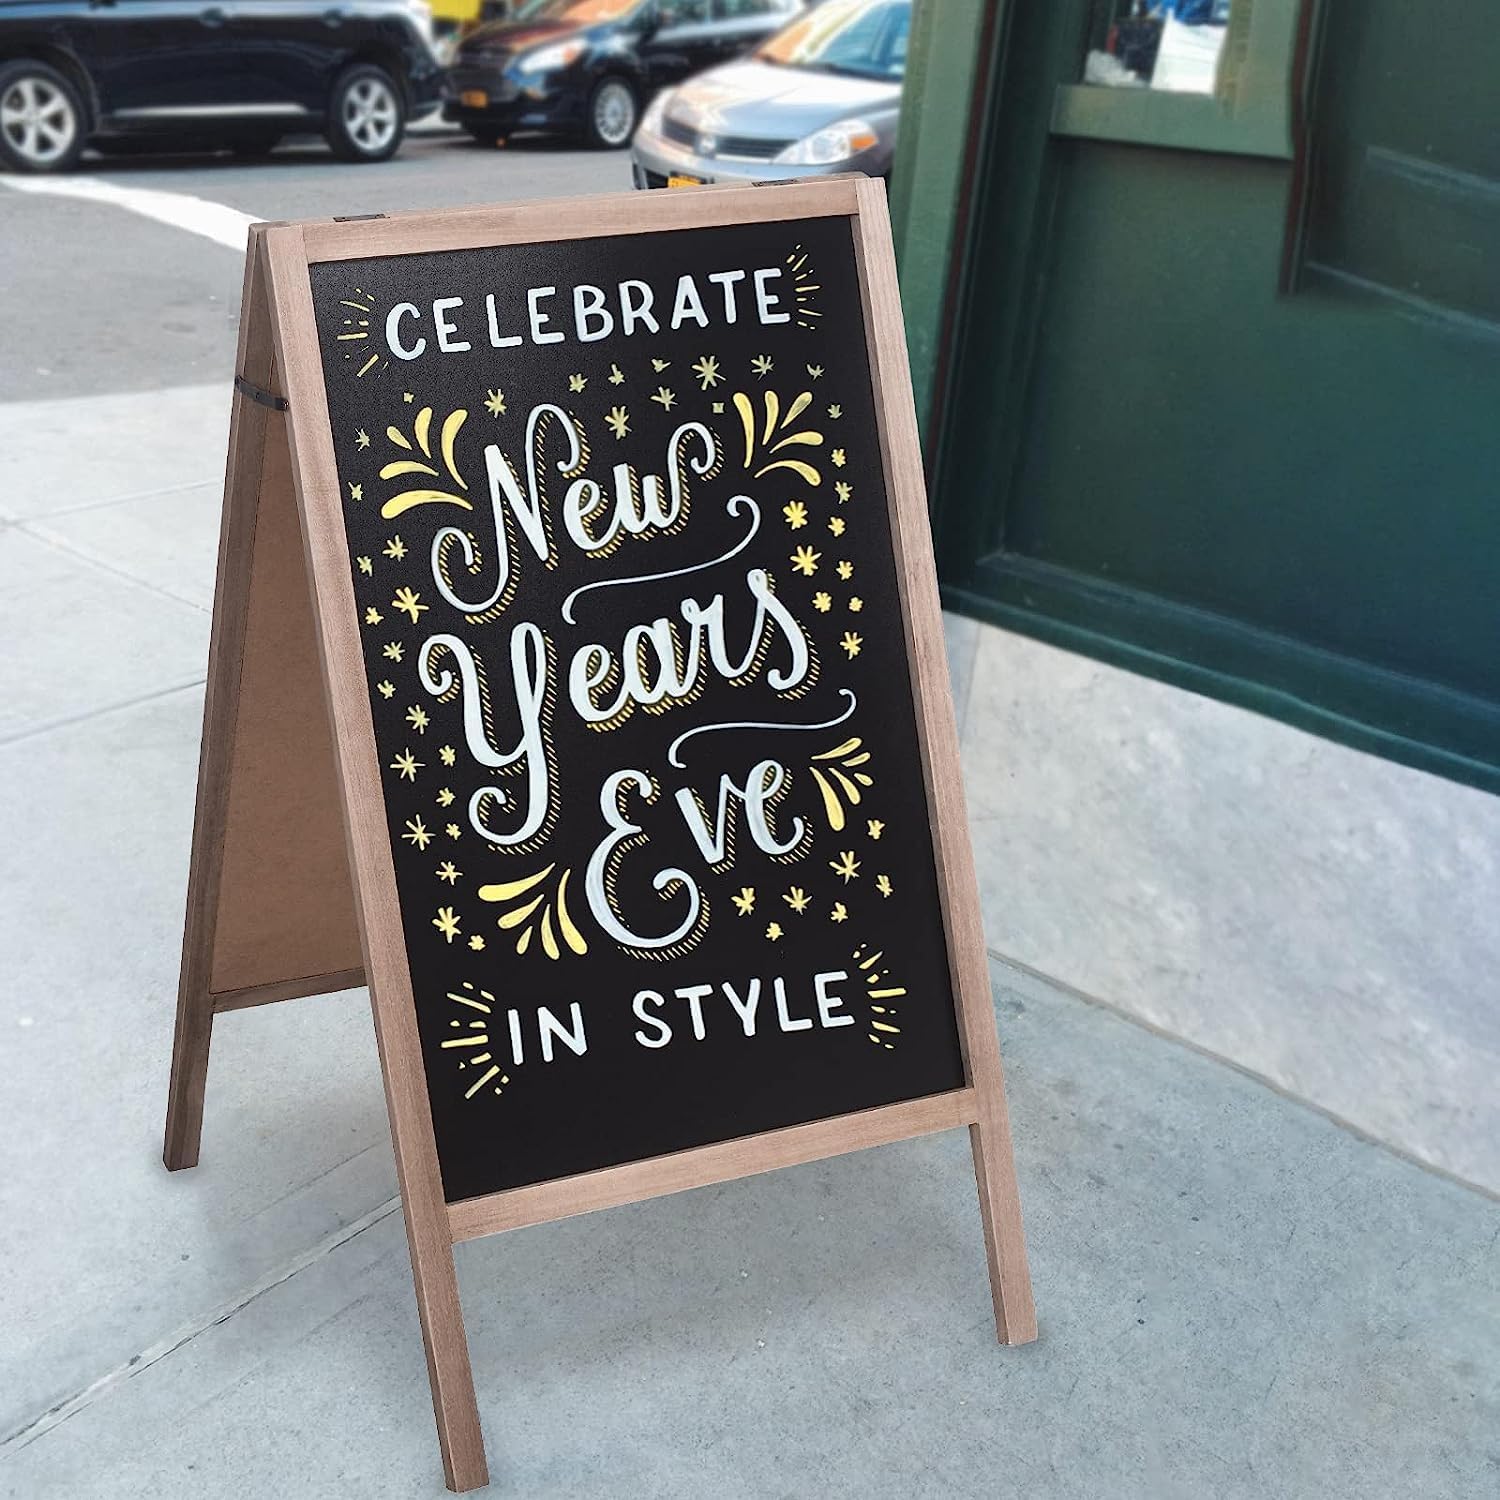 CELEBRATE
New
Years
Eve
IN STYLE